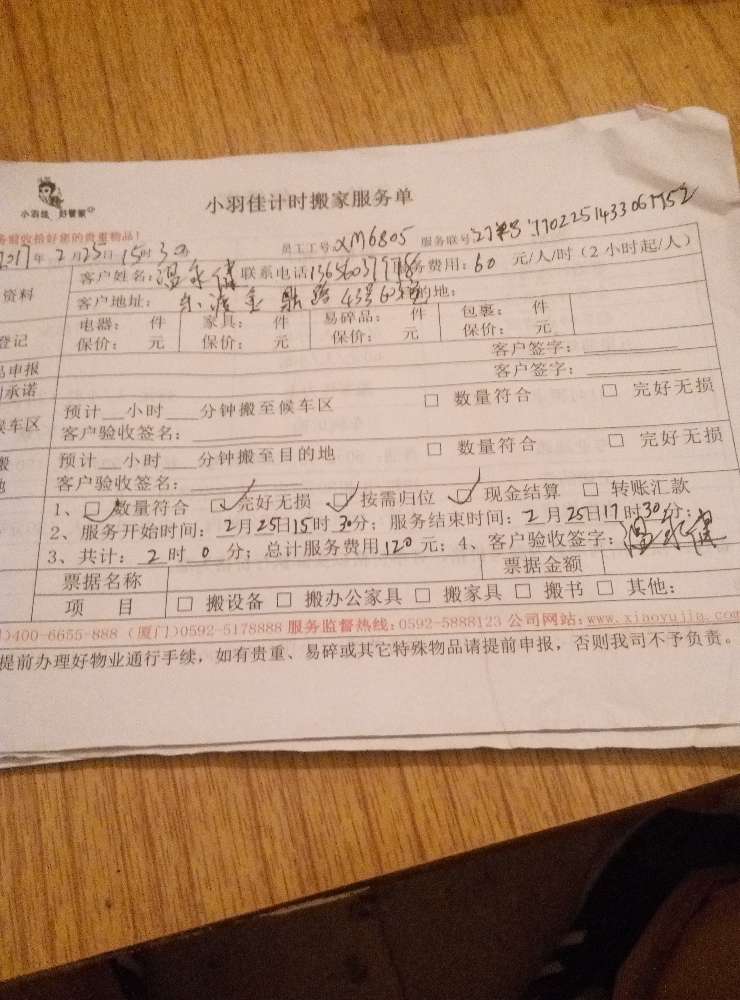 小羽佳 好管家
小羽佳计时搬家服务单
务前收拾好您的贵重物品!
员工工号:XM6805 服务联号
2017年2月25日15时30
资料 客户姓名:温永健 联系电话 服务费用:60 元/人/时(2小时起/人)
客户地址: 东渡金鼎路43号 的地:
登记 电器: 件 家具: 件 易碎品: 件 包裹: 件
保价: 元 保价: 元 保价: 元 保价: 元
品申报 客户签字:
承诺 客户签字:
候车区 预计 小时 分钟搬至候车区 □ 数量符合 □ 完好无损
客户验收签名:
搬 预计 小时 分钟搬至目的地 □ 数量符合 □ 完好无损
地 客户验收签名:
1、☑数量符合 ☑完好无损 ☑按需归位 ☑现金结算 □ 转账汇款
2、服务开始时间:2月25日15时30分; 服务结束时间:2月25日17时30分;
3、共计:2时0分; 总计服务费用120元; 4、客户验收签字:温永健
票据名称 票据金额
项 目 □ 搬设备 □ 搬办公家具 □ 搬家具 □ 搬书 □ 其他:
)400-6655-888 (厦门)0592-5178888 服务监督热线:0592-5888123 公司网站:www.xiaoyujia.com
提前办理好物业通行手续,如有贵重、易碎或其它特殊物品请提前申报,否则我司不予负责。